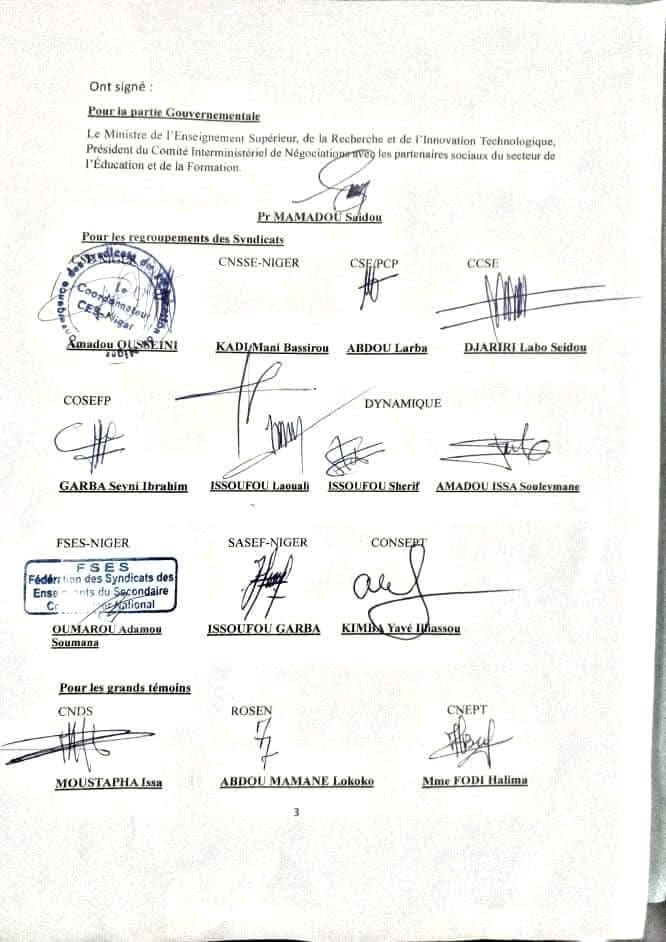 Ont signé :
Pour la partie Gouvernementale
Le Ministre de l'Enseignement Supérieur, de la Recherche et de l'Innovation Technologique,
Président du Comité Interministériel de Négociations avec les partenaires sociaux du secteur de
l'Éducation et de la Formation.
Pr MAMADOU Saidou
Pour les regroupements des Syndicats
CNSSE-NIGER CSE/PCP CCSE
Le
Coordonnateur
CES-Niger
Amadou OUSSEINI KADI Mani Bassirou ABDOU Larba DJARIRI Labo Seidou
COSEFP DYNAMIQUE
GARBA Seyni Ibrahim ISSOUFOU Laouali ISSOUFOU Sherif AMADOU ISSA Souleymane
FSES-NIGER SASEF-NIGER CONSEPT
FSES
Fédération des Syndicats des
Enseignants du Secondaire
National
OUMAROU Adamou ISSOUFOU GARBA KIMBA Yayé Illiassou
Soumana
Pour les grands témoins
CNDS ROSEN CNEPT
MOUSTAPHA Issa ABDOU MAMANE Lokoko Mme FODI Halima
3